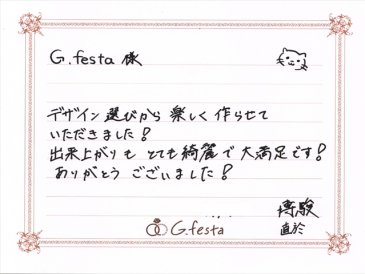 G.festa 様
デザイン選びから楽しく作らせて
いただきました!
出来上がりもとても綺麗で大満足です!
ありがとうございました!
博駿
直於
G.festa